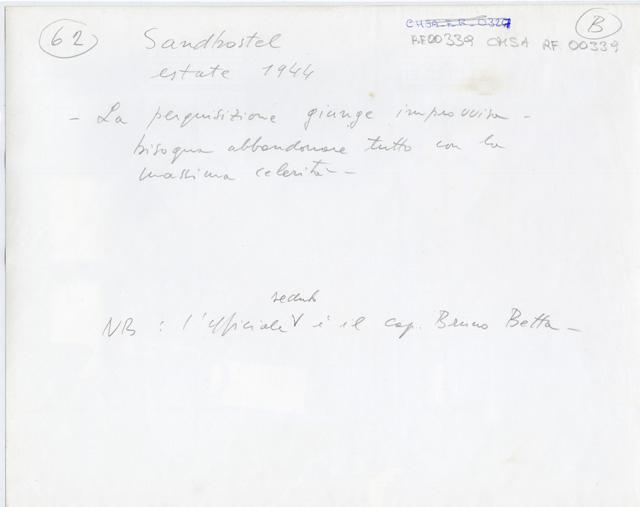 62
CHSA RF 0327
B
RF00339 CHSA RF 00339
Sandbostel
estate 1944
- La perquisizione giunge improvvisa -
bisogna abbandonare tutto con la
massima celerità -
seduto
NB : l'ufficiale V è il cap. Bruno Betta -